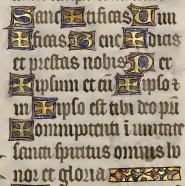 Sanctificas Uiui
ficas Benedicis
et prestas nobis Per
ipsum et cũ ipso et
in ipso est tibi deo pr̃i
omnipotenti ĩ unitate
sancti spiritus omnis ho
nor et gloria